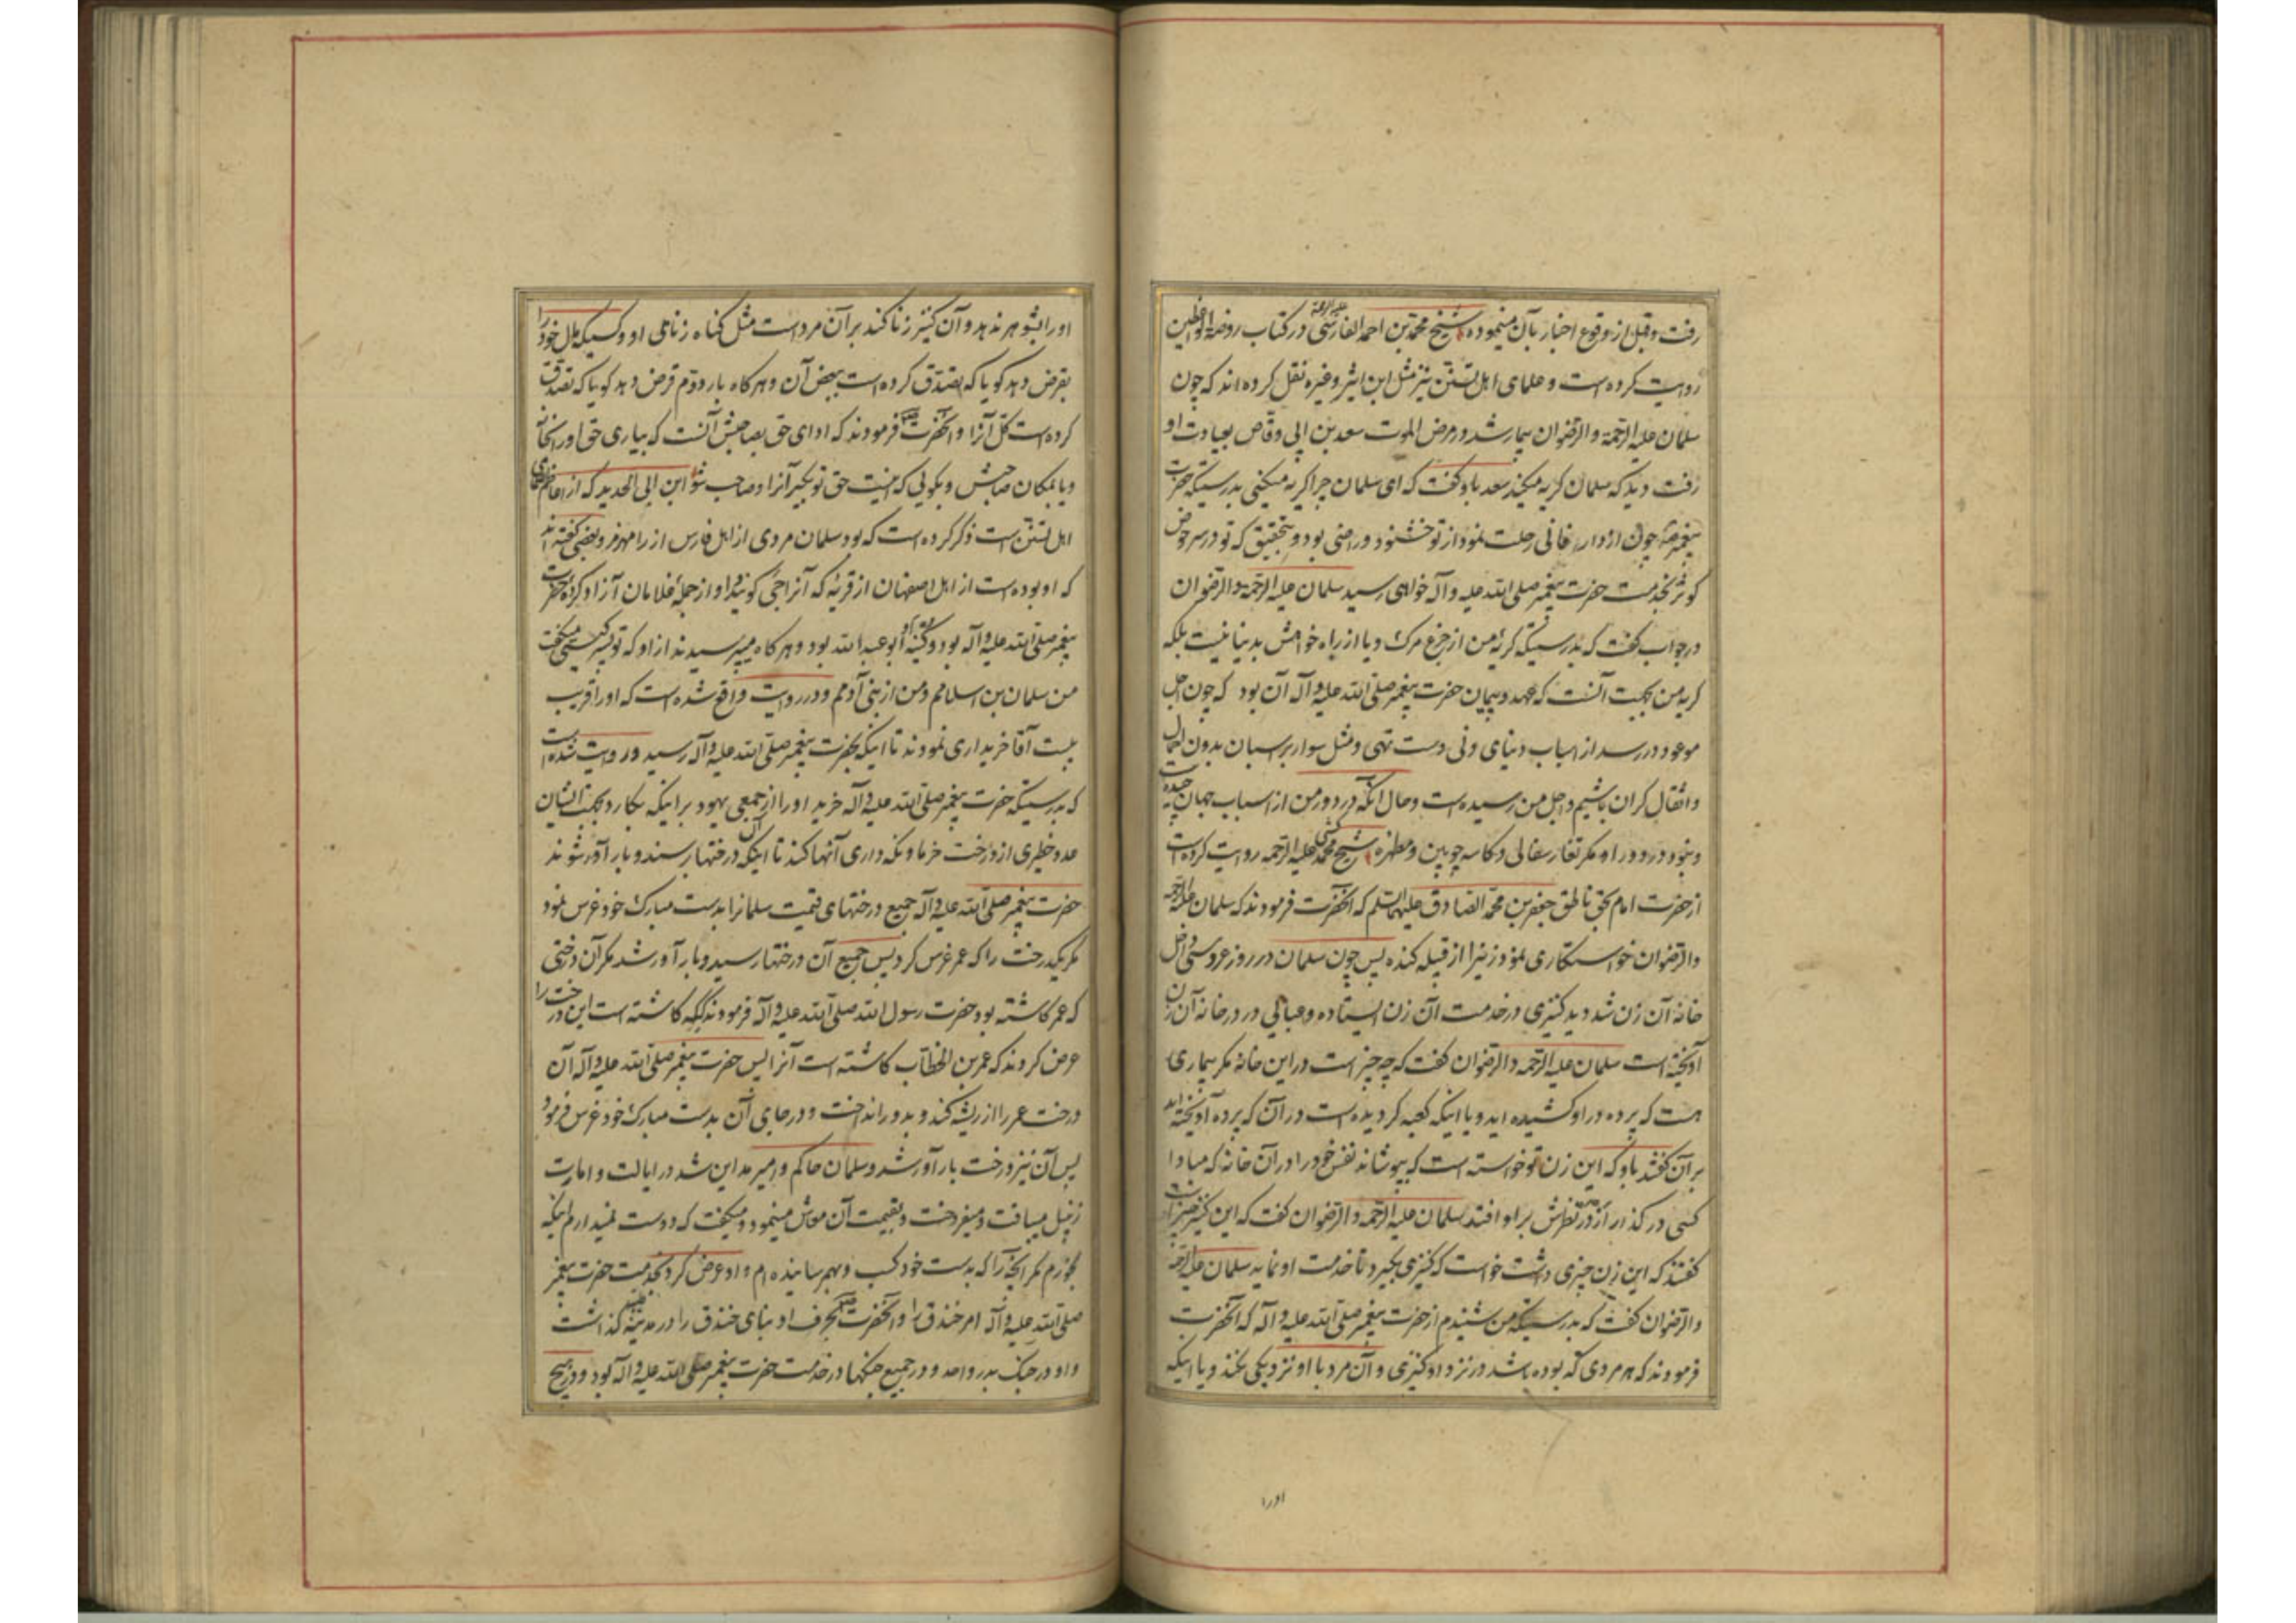 رفت و قبل از وقوع اخبار بآن مینموده شیخ محمد بن احمد الفارسی علیه الرحمة در کتاب روضة الواعظین
روایت کرده است و علمای اهل تسنن نیز مثل ابن اثیر و غیره نقل کرده اند که چون
سلمان علیه الرحمة والرضوان بیمار شد در مرض الموت سعد بن ابی وقاص بعیادت او
رفت دید که سلمان کریه میکند سعد باو کفت که ای سلمان چرا کریه میکنی بدرستیکه حضرت
پیغمبر چون از دار فانی رحلت نمود از تو خشنود و راضی بود و بتحقیق که تو در سر حوض
کوثر بخدمت حضرت پیغمبر صلی الله علیه و آله خواهی رسید سلمان علیه الرحمة والرضوان
در جواب کفت که بدرستیکه کریه من از جزع مرک و یا از راه خواهش بدنیا نیست بلکه
کریه من بجهت آنست که عهد و پیمان حضرت پیغمبر صلی الله علیه و آله آن بود که چون اجل
موعود در رسد از اسباب دنیای دنی دست تهی و مثل سوار بر اسبان بدون احمال
و اثقال کران باشیم و اجل من رسیده است و حال آنکه در دور من از اسباب جهان چیده
و نبود در دور او مکر تغار سفالی و کاسه چوبین و مطهره شیخ محمد کشی علیه الرحمه روایت کرده است
از حضرت امام بحق ناطق جعفر بن محمد الصادق علیهما السلم که آنحضرت فرمودند که سلمان علیه الرحمة
والرضوان خواستکاری نمود زنیرا از قبیله کنده پس چون سلمان در روز عروسی داخل
خانه آن زن شد دید کنیزی در خدمت آن زن ایستاده و عبائی در در خانه آن زن
آویخته است سلمان علیه الرحمه والرضوان کفت که چه چیز است در این خانه مکر بیماری
هست که پرده در او کشیده اید و یا اینکه کعبه کردیده است در آن که پرده آویخته اید
بر آن کفتند باو که این زن تو خواسته است که بپوشاند نفس خود را در آن خانه که مبادا
کسی در کذار از دور نظرش بر او افتد سلمان علیه الرحمه والرضوان کفت که این کنیز چیست
کفتند که این زن چیزی داشت خواست که کنیزی بکیرد تا خدمت او نماید سلمان علیه الرحمة
والرضوان کفت که بدرستیکه من شنیدم از حضرت پیغمبر صلی الله علیه و آله که آنحضرت
فرمودند که هر مردی که بوده باشد در نزد او کنیزی و آن مرد با او نزدیکی نکند و یا اینکه
اورا
اورا بشوهر ندهد و آن کنیز زنا کند بر آن مرد است مثل کناه زناهای او و کسیکه مال خود را
بقرض دهد کویا که تصدق کرده است ببعض آن و هر کاه بار دوم قرض دهد کویا که تصدق
کرده است کل آنرا و آنحضرت فرمودند که ادای حق بصاحبش آنست که بیاری حق اورا بخانه
و یا بمکان صاحبش و بکوئی که اینست حق تو بکیر آنرا و صاحب شو ابن ابی الحدید که از اعاظم علمای
اهل تسنن است ذکر کرده است که بود سلمان مردی از اهل فارس از رامهرمز و بعضی کفته اند
که او بوده است از اهل اصفهان از قریه که آنرا جی کویند و او از جمله غلامان آزاد کرده حضرت
پیغمبر صلی الله علیه و آله بود و کنیه او ابو عبد الله بود و هر کاه میپرسیدند از او که تو پسر کیستی میکفت
من سلمان بن اسلامم و من از بنی آدمم و در روایت واقع شده است که او را قریب
بیست آقا خریداری نمودند تا اینکه بحضرت پیغمبر صلی الله علیه و آله رسید و روایت شده است
که بدرستیکه حضرت پیغمبر صلی الله علیه و آله خرید او را از جمعی یهود بر اینکه بکارد بجهت ایشان
عدد خطیری از درخت خرما و نکه داری آنها کند تا اینکه آن درختها برسند و بار آور شوند
حضرت پیغمبر صلی الله علیه و آله جمیع درختهای قیمت سلمانرا بدست مبارک خود غرس نمود
مکر یکدرخت را که عمر غرس کرد پس جمیع آن درختها رسید و بار آور شد مکر آن درختی
که عمر کاشته بود حضرت رسول الله صلی الله علیه و آله فرمودند که کاشته است این درخت را
عرض کردند که عمر بن الخطاب کاشته است آنرا پس حضرت پیغمبر صلی الله علیه و آله آن
درخت عمر را از ریشه کند و بدور انداخت و در جای آن بدست مبارک خود غرس فرمود
پس آن نیز درخت بار آور شد و سلمان حاکم و امیر مداین شد در ایالت و امارت
زنبیل میبافت و میفروخت و بقیمت آن معاش مینمود و میکفت که دوست نمیدارم اینکه
بخورم مکر آنچه را که بدست خود کسب و بهم رسانیده ام و او عرض کرد بخدمت حضرت پیغمبر
صلی الله علیه و آله امر خندق را و آنحضرت بحرف او بنای خندق را در مدینه کذاشت
و او در جنک بدر و احد و در جمیع جنکها در خدمت حضرت پیغمبر صلی الله علیه و آله بود و در هیچ